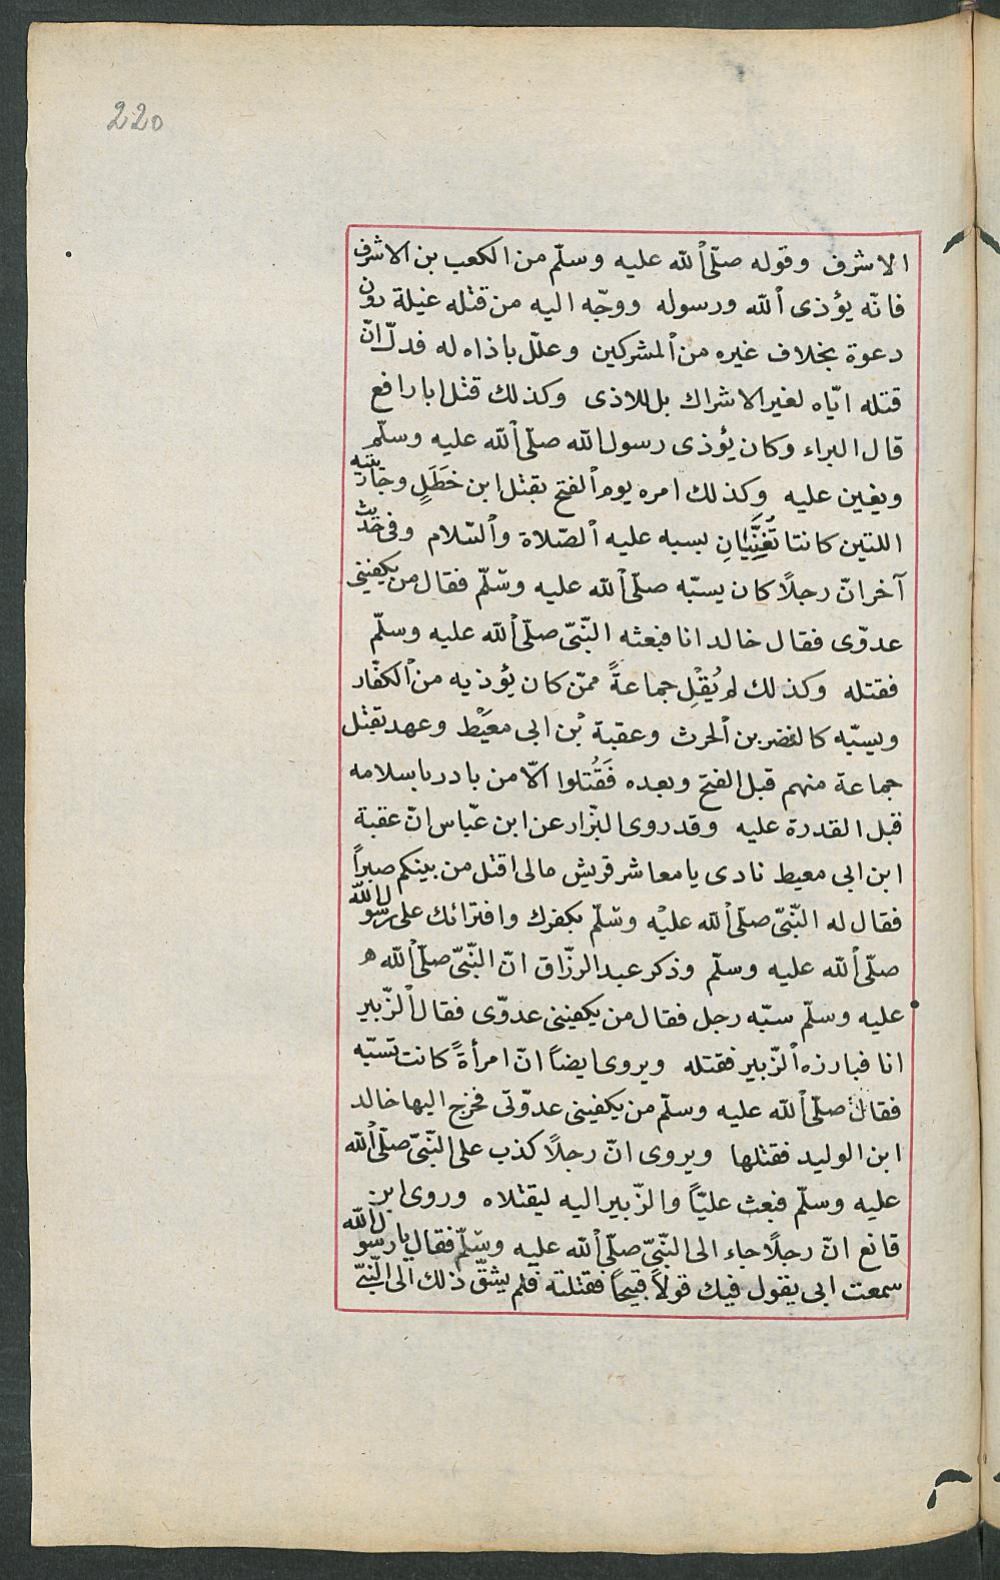 220
الاشرف وقوله صلّى الله عليه وسلّم من الكعب بن الاشرف
فانّه يؤذى الله ورسوله ووجّه اليه من قتله غيلة دون
دعوة بخلاف غيره من المشركين وعلّل باذاه له فدلّ انّ
قتله ايّاه لغير الاشراك بل للاذى وكذلك قتل ابا رافع
قال البراء وكان يؤذى رسول الله صلّى الله عليه وسلّم
ويغين عليه وكذلك امره يوم الفتح بقتل ابن خَطَلٍ وجاريتيه
اللتين كانتا تُغَنِّيَانِ بسبه عليه الصّلاة والسّلام وفى حديث
آخر انّ رجلًا كان يسبّه صلّى الله عليه وسّلّم فقال من يكفينى
عدوّى فقال خالد انا فبعثه النّبىّ صلّى الله عليه وسلّم
فقتله وكذلك لم يُقْلِ جماعةً ممّن كان يؤذيه من الكفّار
ويسبّه كالنضر بن الحرث وعقبة بْن ابى معَيْط وعهد بقتل
جماعة منهم قبل الفتح وبعده فَقُتلوا الّا من بادر باسلامه
قبل القدرة عليه وقد روى البزّار عن ابن عبّاس انّ عقبة
ابن ابى معيط نادى يا معاشر قريش مالى اقتل من بينكم صبراً
فقال له النّبىّ صلّى الله عليْه وسّلّم بكفرك وافترائك على رسول الله
صلّى الله عليه وسلّم وذكر عبد الرزّاق انّ النّبىّ صلّى الله ه
عليه وسلّم سبّه رجل فقال من يكفينى عدوّى فقال الزّبير
انا فبارزه الزّبير فقتله ويروى ايضاً انّ امرأةً كانت تسبّه
فقال صلّى الله عليه وسلّم من يكفينى عدوّتى فخرج اليها خالد
ابن الوليد فقتلها ويروى انّ رجلًا كذب على النّبىّ صلّى الله
عليه وسلّم فبعث عليّاً والزّبير اليه ليقتلاه وروى ابن
قانع انّ رجلًا جاء الى النّبىّ صلّى الله عليه وسّلّم فقال يا رسول الله
سمعت ابى يقول فيك قولاً قبيحاً فقتلته فلم يشقّ ذلك الى النّبىّ